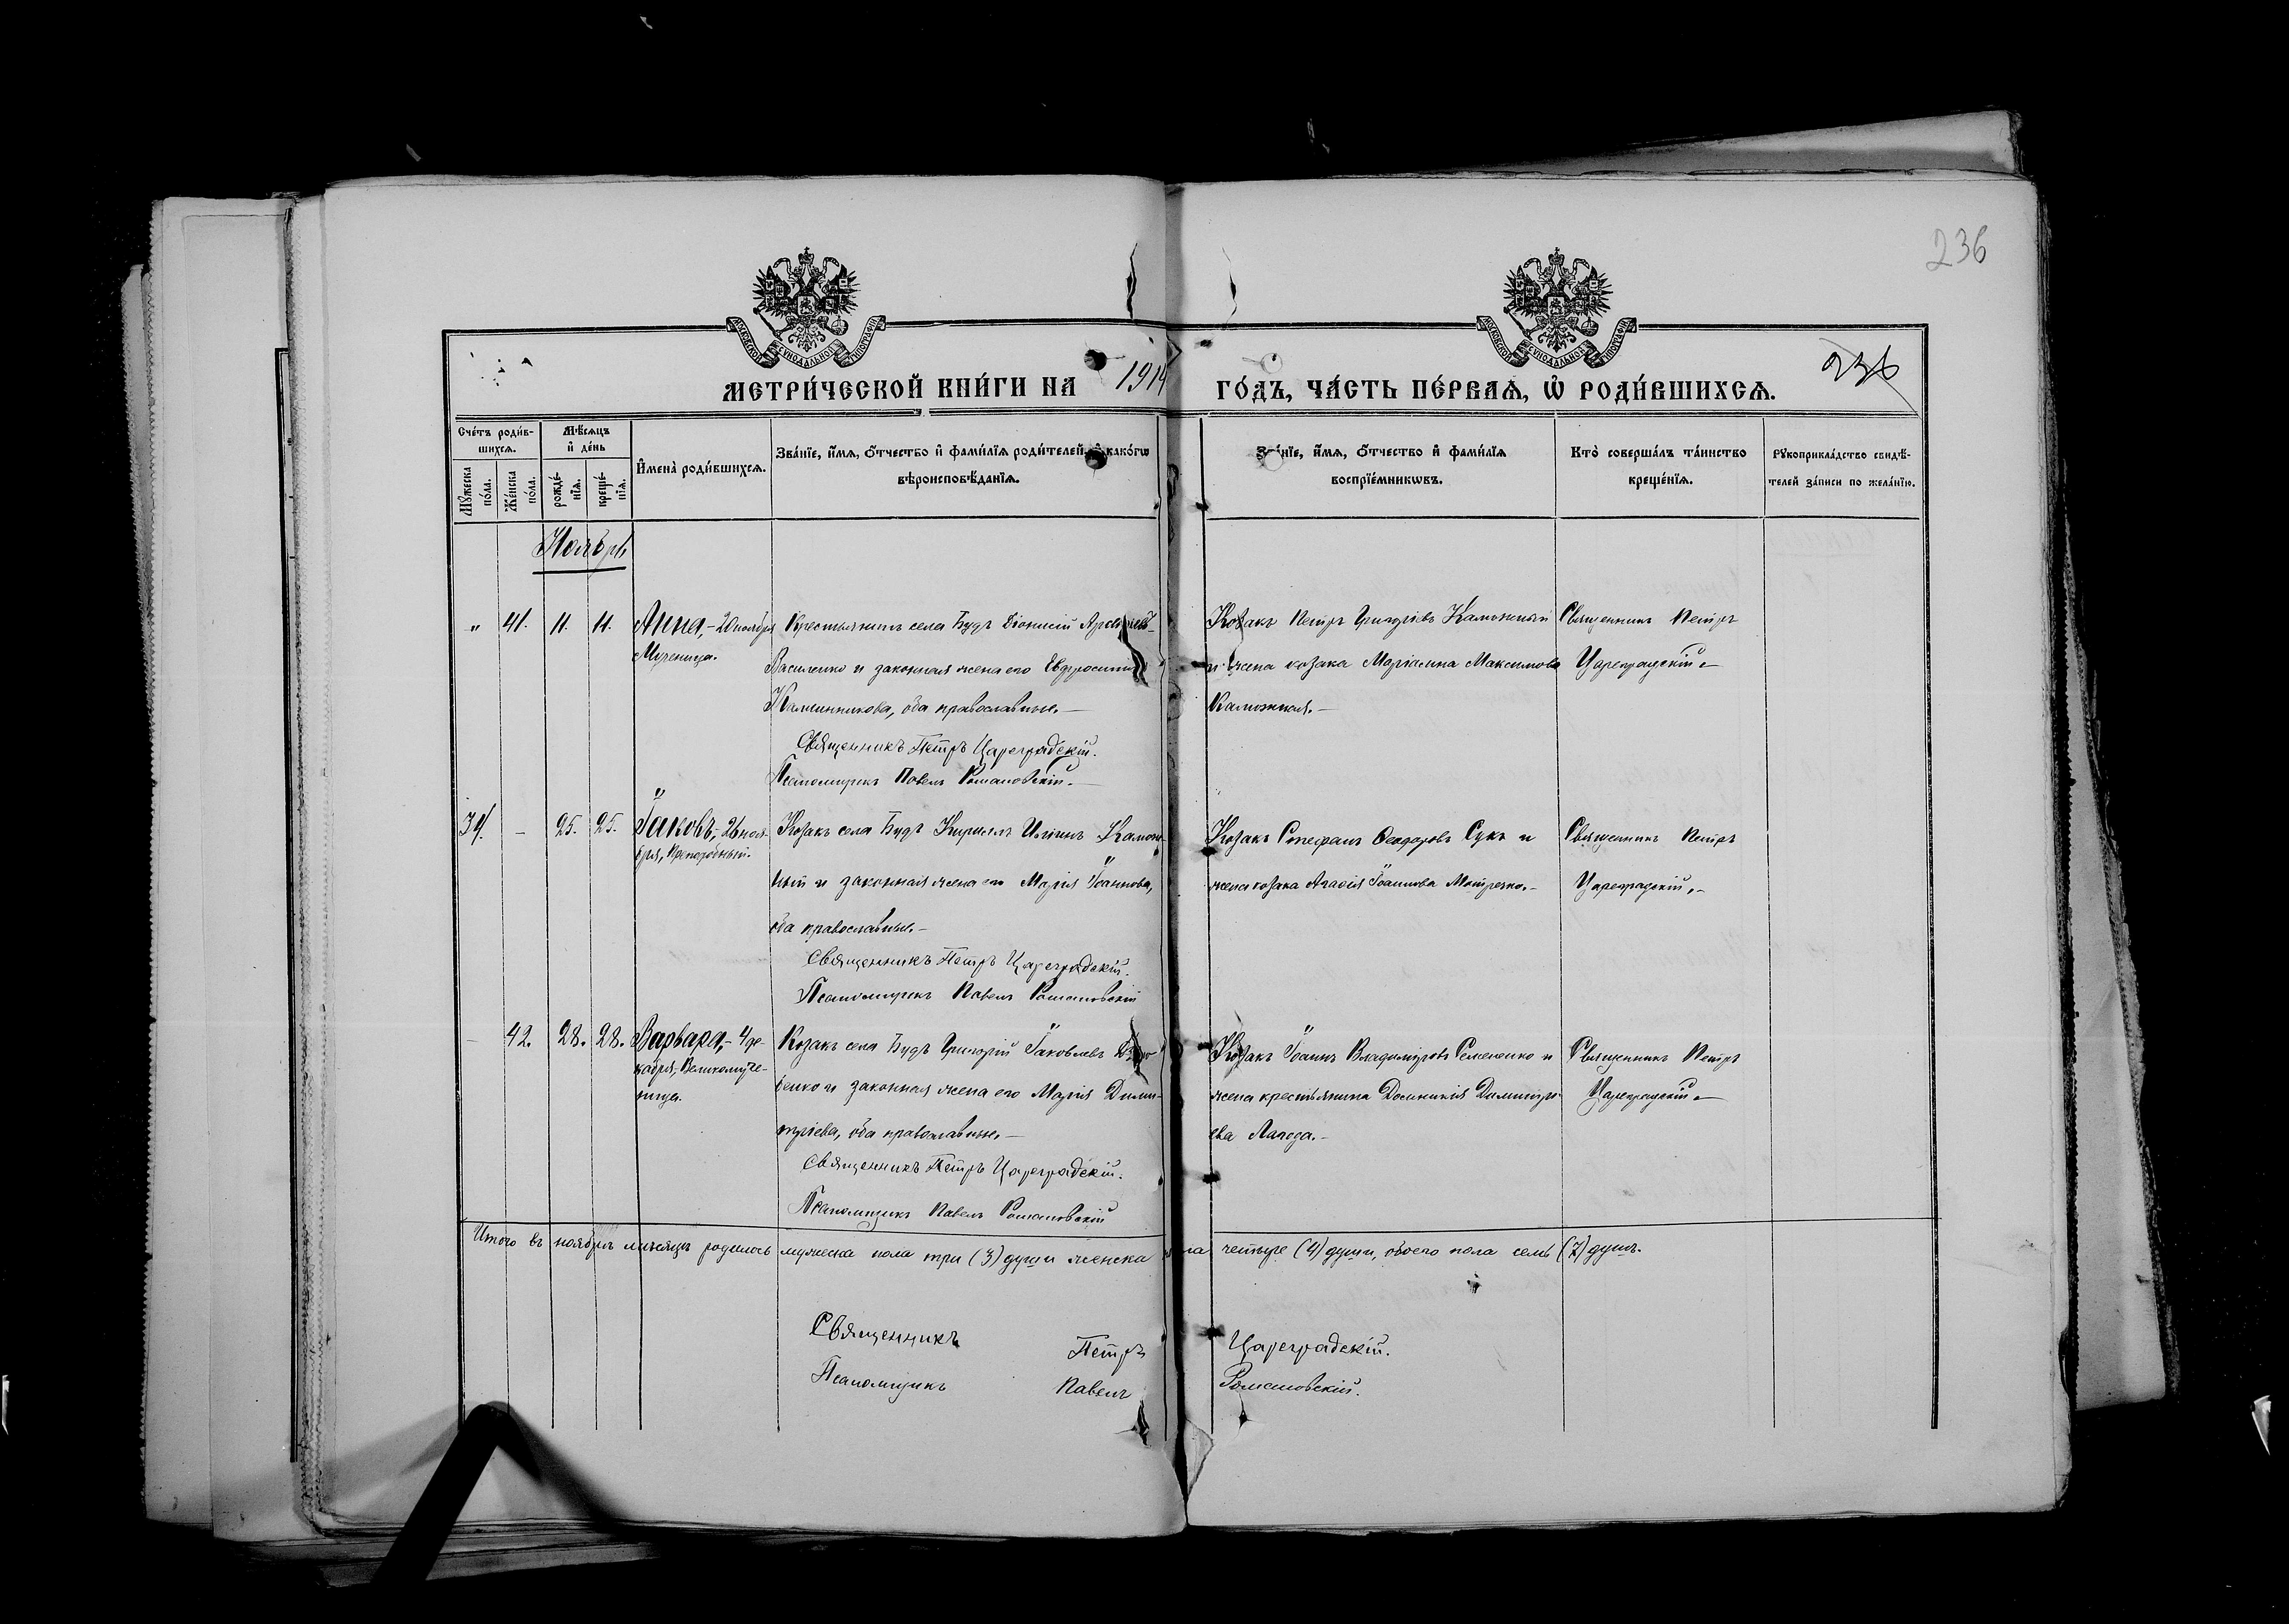 236
МОСКОВСКОЙ СѴНОДАЛЬНОЙ ТИПОГРАФІИ
МОСКОВСКОЙ СѴНОДАЛЬНОЙ ТИПОГРАФІИ
236
МЕТРИ́ЧЕСКОЙ КНИ́ГИ НА 1914 ГО́ДЪ, ЧА́СТЬ ПЕ́РВАѦ, Ѡ҆ РОДИ́ВШИХСѦ.
Сче́тъ роди́в-
шихсѧ.
Мꙋ́жеска
по́ла.
Же́нска
по́ла.
Мѣ́сѧцъ
и҆ де́нь
рожде́-
нїѧ.
креще́-
нїѧ.
И҆мена̀ роди́вшихсѧ.
Зва́нїе, и҆́мѧ, ѻ҆́тчество и҆ фами́лїѧ роди́телей, и҆ како́гѡ
вѣроисповѣ́данїѧ.
Зва́нїе, и҆́мѧ, ѻ҆́тчество и҆ фами́лїѧ
воспрїе́мникѡвъ.
Кто̀ соверша́лъ та́инство
креще́нїѧ.
Рꙋкоприкла́дство свидѣ́-
телей за́писи по жела́нїю.
Ноябрь
" 41. 11. 11. Анна,- 20 ноября
Мученица.
Крестьянинъ села Будъ Діонисій
Василенко и законная жена его Евфросинія
Калинникова, оба православные.-
Священникъ Петръ Цареградскій.
Псаломщикъ Павелъ Романовскій.-
Козакъ Петръ Григоріевъ Каможный
и жена козака Маріамна Максимова
Каможная.-
Священникъ Петръ
Цареградскій.-
39. - 25. 25. Іаковъ,- 26 нояб-
бря, Преподобный.
Козакъ села Будъ Кириллъ Иліинъ Каможн-
ный и законная жена его Марія Іоаннова,
оба православные.-
Священникъ Петръ Цареградскій.
Псаломщикъ Павелъ Романовскій
Козакъ Стефанъ Ѳеодоровъ Сукъ и
жена козака Агаѳія Іоаннова
Священникъ Петръ
Цареградскій.-
- 42. 28. 28. Варвара,- 4 де-
кабря, Великомуче-
ница.
Козакъ села Будъ Григорій Іаковлевъ
бенко и законная жена его Марія Дими-
тріева, оба православные.-
Священникъ Петръ Цареградскій.
Псаломщикъ Павелъ Романовскій
Козакъ Іоаннъ Владиміровъ Семененко и
жена крестьянина Домникія Димитрі-
ева Лагода.-
Священникъ Петръ
Цареградскій.-
Итого въ ноябрѣ мѣсяцѣ родилось мужеска пола три (3) души женска пола четыре (4) души, обоего пола семь (7) душъ.
Священникъ Петръ Цареградскій.
Псаломщикъ Павелъ Романовскій.